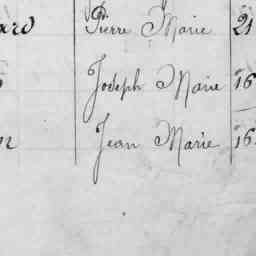 ard Pierre Marie 21
Joseph Marie 16
Jean Marie 16